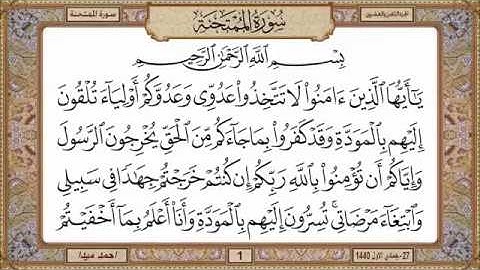 الجزء الثامن والعشرين
سورة الممتحنة
سُورَةُ المُمْتَحنَةِ
بِسْمِ ٱللَّهِ ٱلرَّحْمَٰنِ ٱلرَّحِيمِ
يَٰٓأَيُّهَا ٱلَّذِينَ ءَامَنُوا۟ لَا تَتَّخِذُوا۟ عَدُوِّى وَعَدُوَّكُمْ أَوْلِيَآءَ تُلْقُونَ
إِلَيْهِم بِٱلْمَوَدَّةِ وَقَدْ كَفَرُوا۟ بِمَا جَآءَكُم مِّنَ ٱلْحَقِّ يُخْرِجُونَ ٱلرَّسُولَ
وَإِيَّاكُمْ أَن تُؤْمِنُوا۟ بِٱللَّهِ رَبِّكُمْ إِن كُنتُمْ خَرَجْتُمْ جِهَٰدًا فِى سَبِيلِى
وَٱبْتِغَآءَ مَرْضَاتِى تُسِرُّونَ إِلَيْهِم بِٱلْمَوَدَّةِ وَأَنَا۠ أَعْلَمُ بِمَآ أَخْفَيْتُمْ
27- جمادي الاول 1440
1
/احمد سيد/